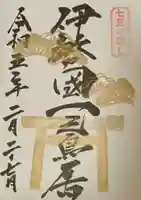 伊勢國一鳥居
令和五年
二月二十七日